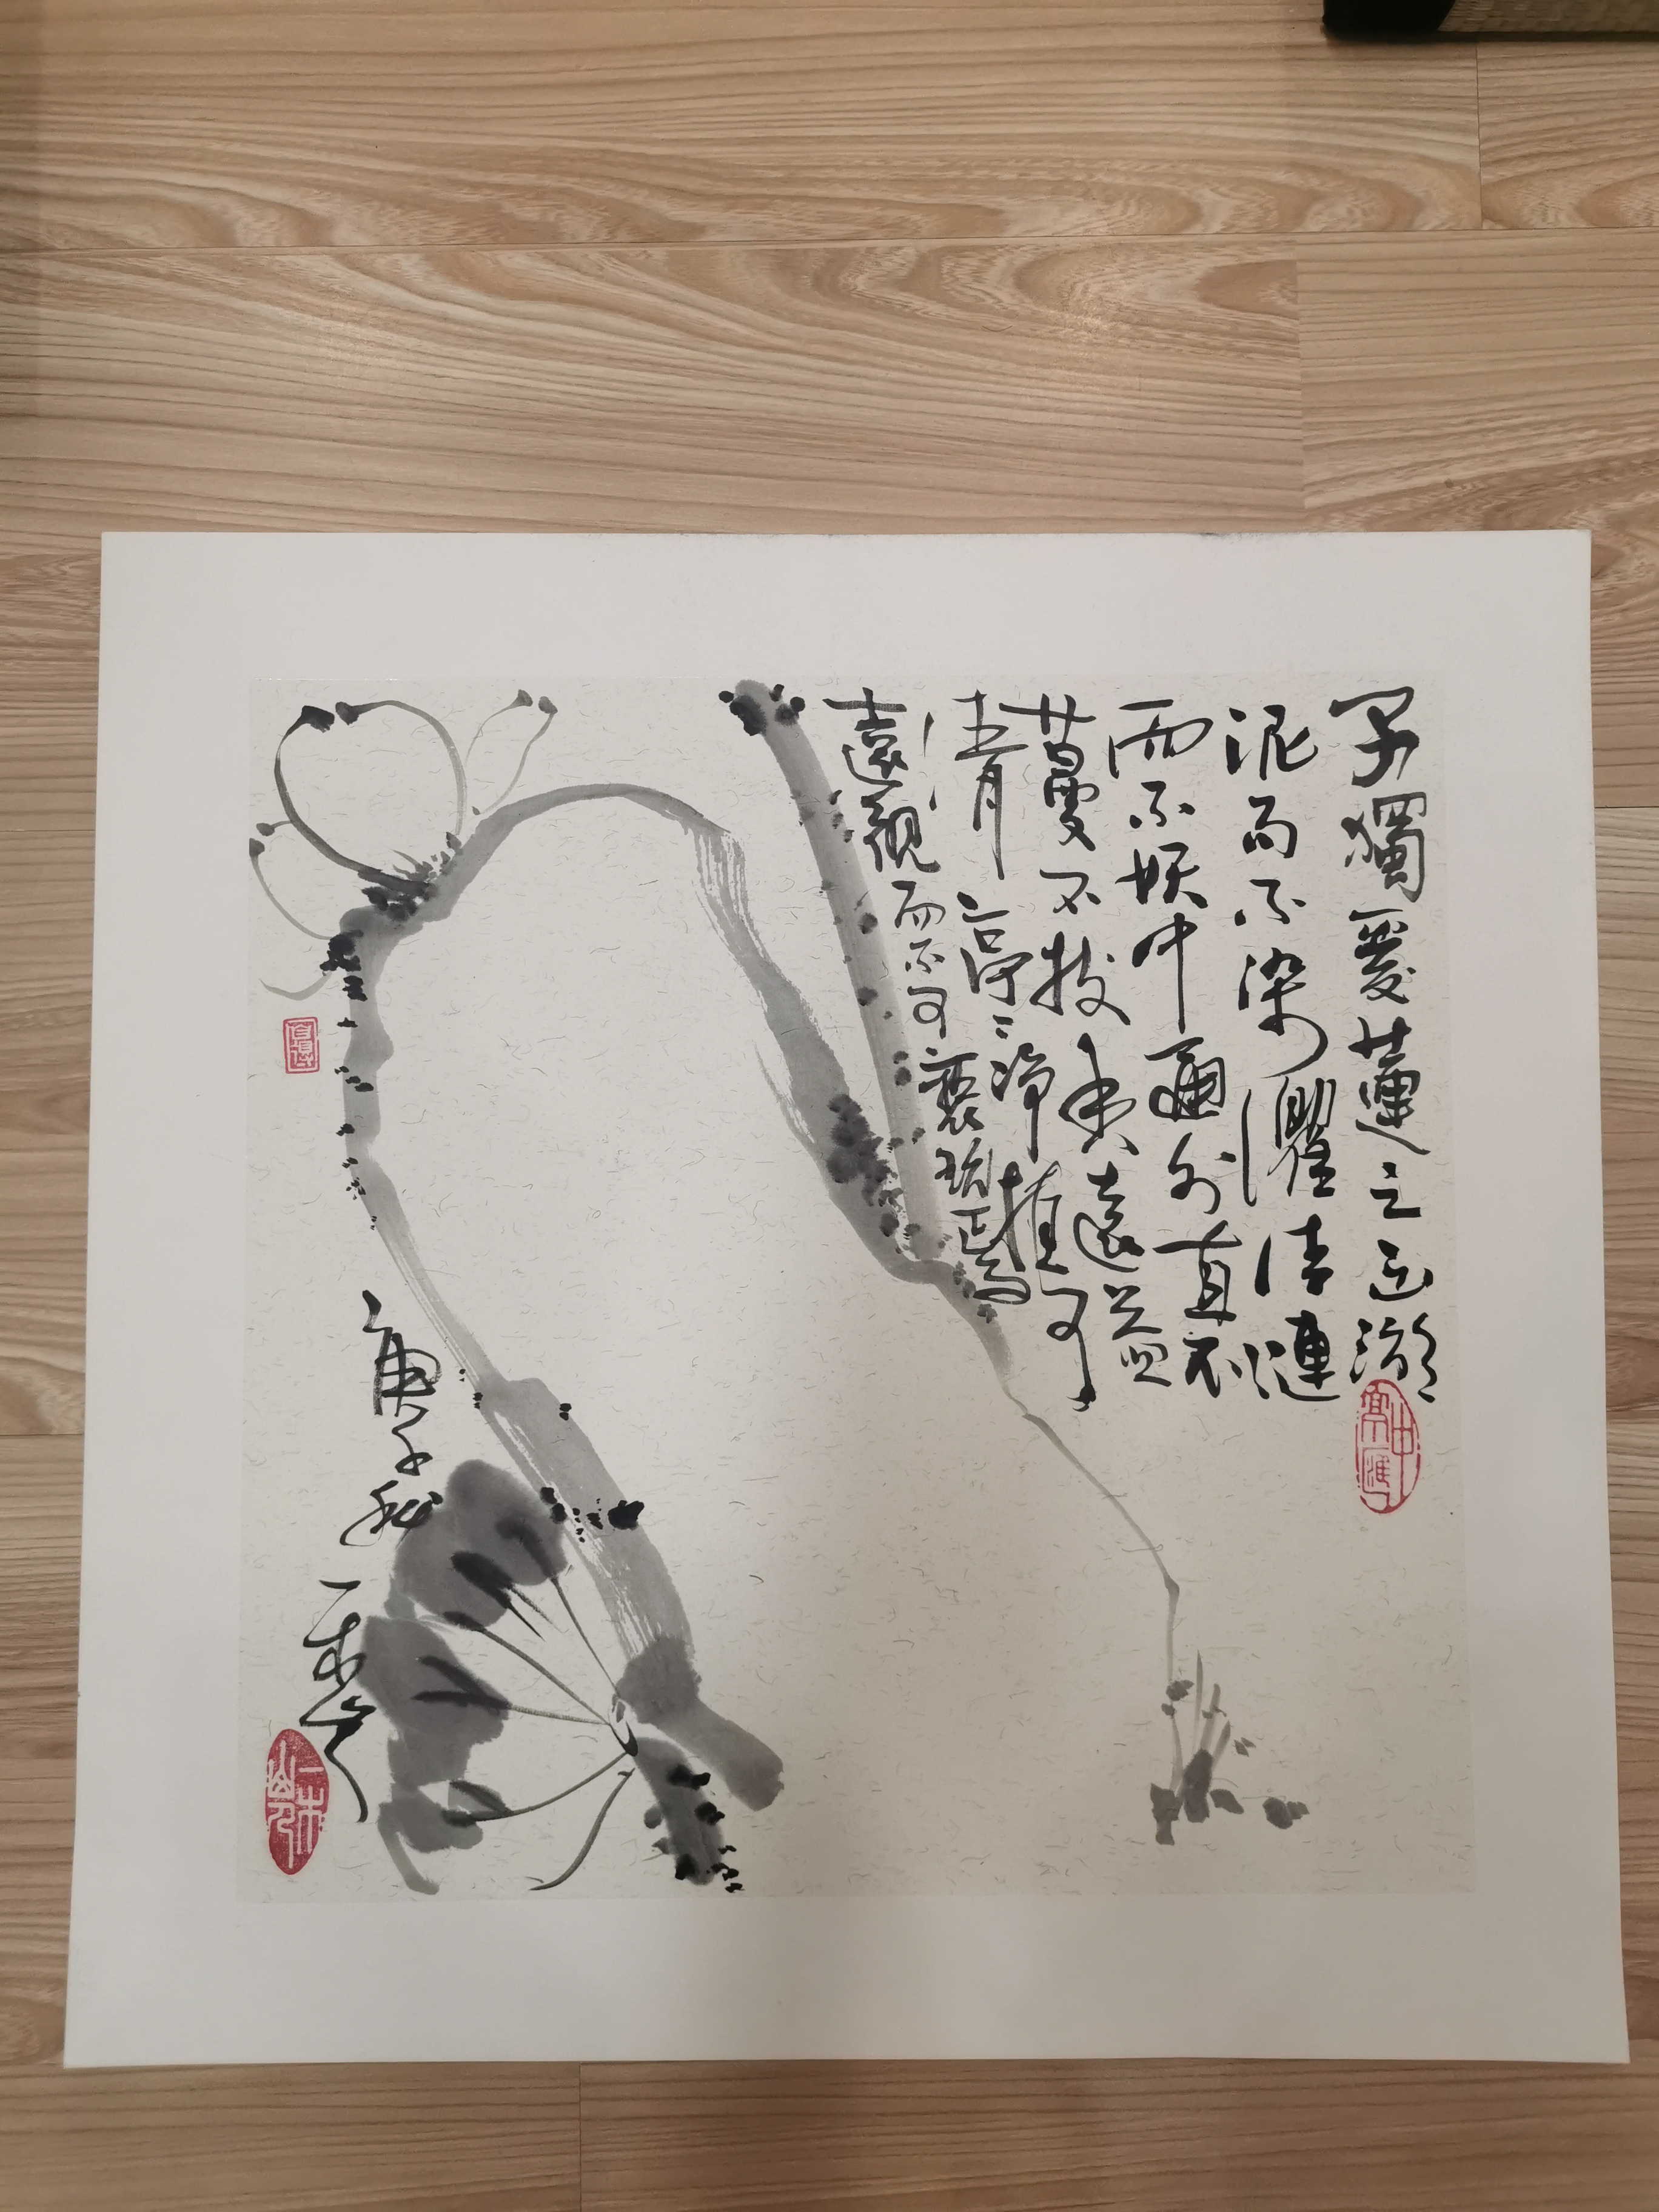 予獨愛蓮之出淤
泥而不染濯清漣
而不妖中通外直不
蔓不枝香遠益
清亭〻淨植可
遠觀而不可褻玩焉
庚子秋